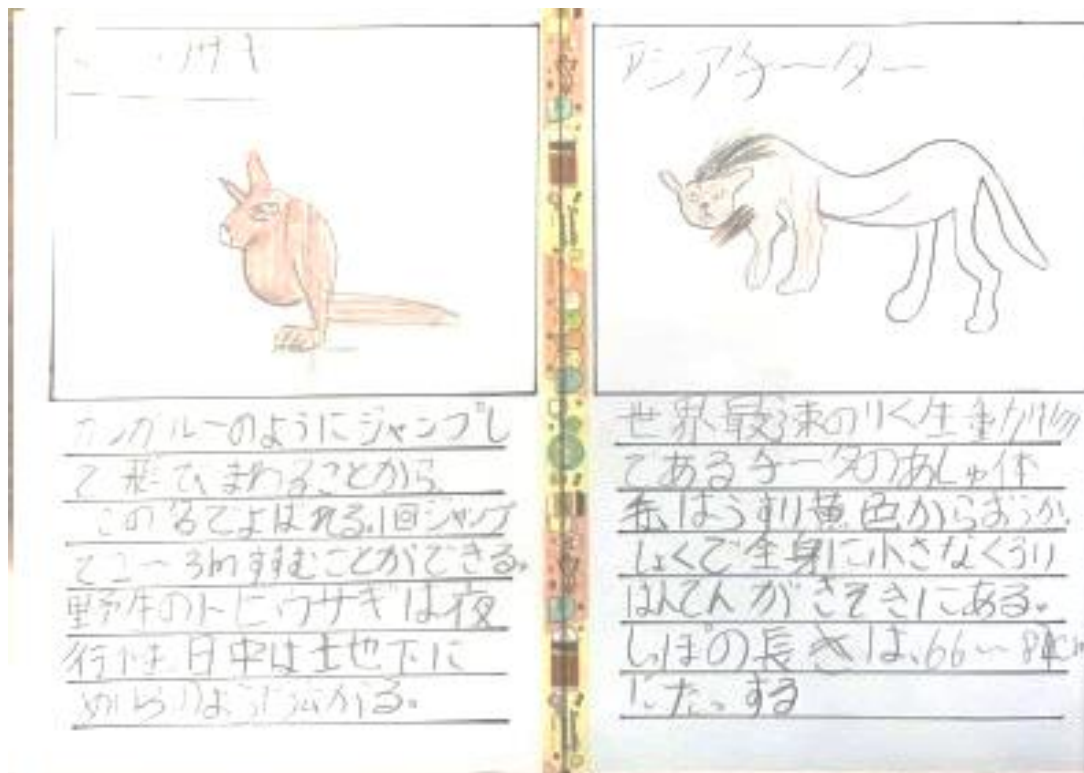 カンガルーのようにジャンプし
てまわることから
この名でよばれる。1回ジャンプ
で2〜3mすすむことができる。
野生のトビウサギは夜
行性 日中は土地下に
アジアチーター
世界最速のりく生動物
であるチータのあしゅ体
色はうすい黄色からおうか
しょくで全身に小さなくろい
はんてんがきそくにある。
しっぽの長さは、66〜
にたっする